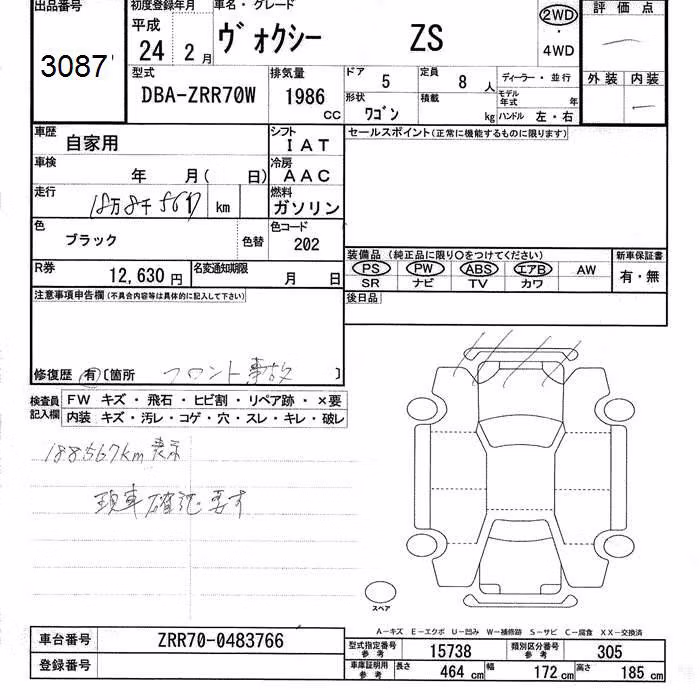 出品番号 初度登録年月 車名・グレード 2WD 評価点
3087 平成 24 2月 ヴォクシー ZS ・ 4WD —
型式 排気量 ドア 5 定員 8 人 ディーラー・並行 外装 内装
DBA-ZRR70W 1986 cc 形状 ワゴン 積載 kg モデル年式 年 —
ハンドル 左・右
車歴 自家用 シフト IAT セールスポイント(正常に機能するものに限ります)
車検 年 月( 日) 冷房 AAC
走行 18万8千567 km 燃料 ガソリン
色 ブラック 色替 色コード 202
装備品(純正品に限り○をつけてください) 新車保証書
R券 12,630 円 名変通知期限 月 日 PS PW ABS エアB AW 有・無
SR ナビ TV カワ
注意事項申告欄(不具合内容等は具体的に記入して下さい) 後日品
修復歴 有 [箇所 フロント事故 ]
検査員記入欄 FW キズ・飛石・ヒビ割・リペア跡・×要
内装 キズ・汚レ・コゲ・穴・スレ・キレ・破レ
188567km表示
現車確認要す
スペア
A-キズ E-エクボ U-凹み W-補修跡 S-サビ C-腐食 XX-交換済
車台番号 ZRR70-0483766 型式指定番号 参考 15738 類別区分番号 参考 305
登録番号 車庫証明用 参考 長さ 464 cm 幅 172 cm 高さ 185 cm